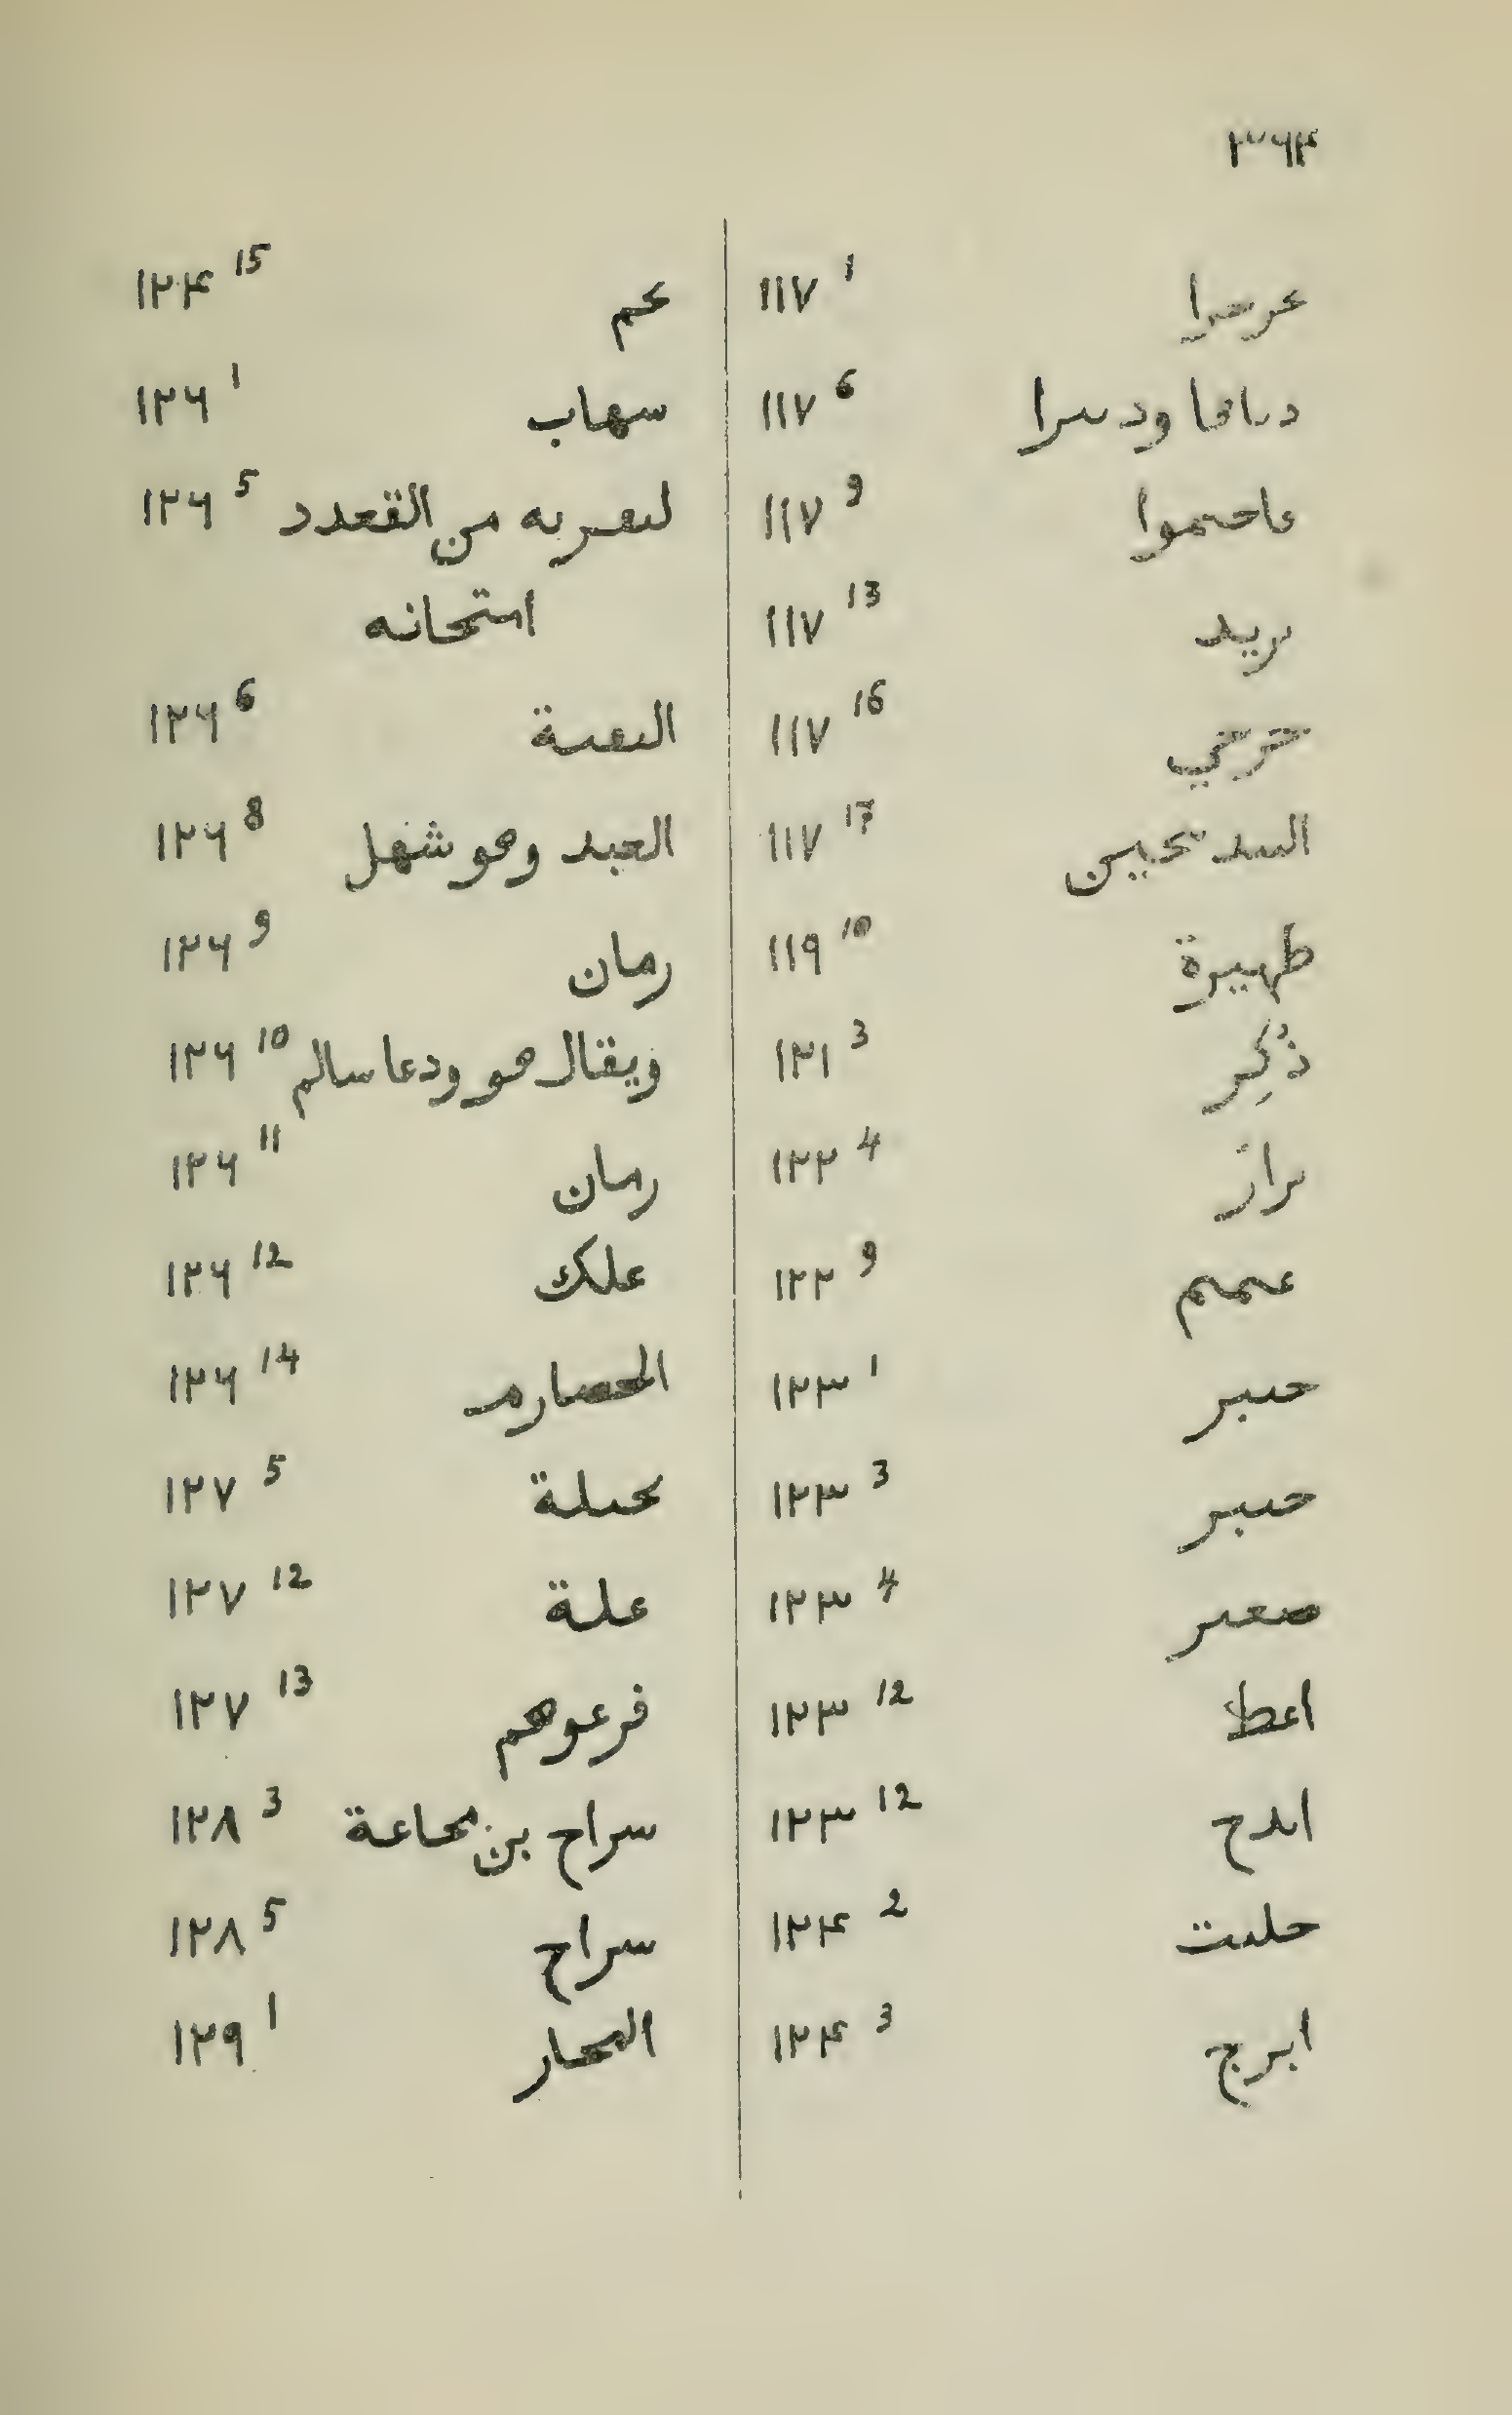 ٣٦٤
عرحرا ١١٧ 1
دىاىحا ودىىرا ١١٧ 6
ماحىىموا ١١٧ 9
ىريد ١١٧ 13
حرىخي ١١٧ 16
السد ىحيين ١١٧ 17
طهيرة ١١٩ 10
ذُكِر ١٢١ 3
ىراز ١٢٢ 4
عىمىم ١٢٢ 9
حىىبر ١٢٣ 1
حىىبر ١٢٣ 3
صعىر ١٢٣ 4
اعط ١٢٣ 12
اىدح ١٢٣ 12
حلىت ١٢٤ 2
ابرج ١٢٤ 3
عم ١٢٤ 15
سهاب ١٢٦ 1
لىعىربه من القعدد ١٢٦ 5
امتحانه
الىعىة ١٢٦ 6
العبد وهو شهل ١٢٦ 8
رمان ١٢٦ 9
ويقال هو ودعا سالم ١٢٦ 10
رمان ١٢٦ 11
علك ١٢٦ 12
الحصارمه ١٢٦ 14
ىحىلة ١٢٧ 5
علة ١٢٧ 12
فرعوهم ١٢٧ 13
سراح بن محاعة ١٢٨ 3
سراح ١٢٨ 5
الىحار ١٢٩ 1